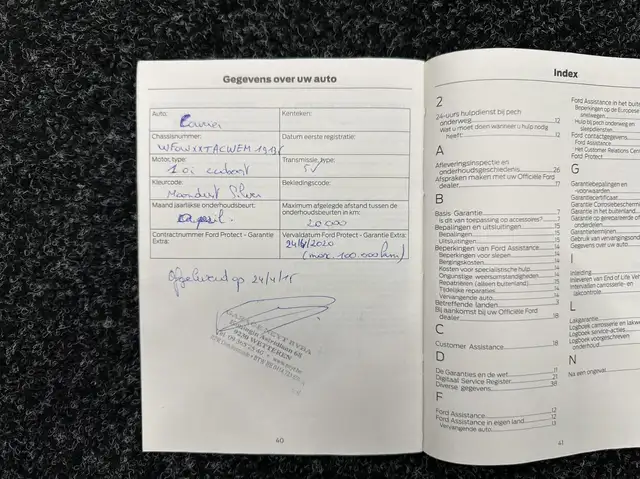 Gegevens over uw auto
Auto:
Kenteken:
Chassisnummer:
Datum eerste registratie:
Motor type:
Transmissie type:
5V
Kleurcode:
Bekledingscode:
Maand jaarlijkse onderhoudsbeurt:
april.
Maximum afgelegde afstand tussen de
onderhoudsbeurten in km:
20000
Contractnummer Ford Protect - Garantie
Extra:
Vervaldatum Ford Protect - Garantie Extra:
24/4/2020
(max. 100.000km)
Afgeleverd op 24/4/15
9230 WETTEREN
40
Index
2
24-uurs hulpdienst bij pech
onderweg 12
Wat u moet doen wanneer u hulp nodig
heeft 13
A
Afleveringsinspectie en
onderhoudsgeschiedenis 26
Afspraken maken met uw Officiële Ford
dealer 17
B
Basis Garantie 7
Is dit van toepassing op accessoires? 7
Bepalingen en uitsluitingen 15
Bepalingen 15
Uitsluitingen 15
Beperkingen van Ford Assistance 14
Beperking voor slepen 14
Bergingskosten 14
Kosten voor specialistische hulp 14
Ongunstige weersomstandigheden 14
Repatriëren (alleen buitenland) 15
Tijdelijke reparaties 14
Vervangende auto 14
Betreffende landen 3
Bij aankomst bij uw Officiële Ford
dealer 18
C
Customer Assistance 18
D
De Garanties en de wet 11
Digitaal Service Register 21
Diverse gegevens 38
F
Ford Assistance 12
Ford Assistance in eigen land 12
Vervangende auto 13
Ford Assistance in het buite
Beperkingen op de Europese
Hulp bij pech onderweg en
sleepdiensten
Ford contactgegevens
Ford Assistance
Het Customer Relations Cent
Ford Protect
G
Garantiebepalingen en
-voorwaarden
Garantiecertificaat
Garantie Corrosiebescherming
Garantie in het buitenland
Garantie op gerepareerde of
onderdelen
Garantieoverzicht
Gebruik van vervangingsonderdelen
Gegevens over uw auto
I
Inleiding
Inleveren van End of Life Veh
Intervallen carrosserie- en
lakcontrole
L
Lakgarantie
Logboek carrosserie en lakwerk
Logboek service-acties
Logboek voorgeschreven
onderhoud
N
Na een ongeval
41